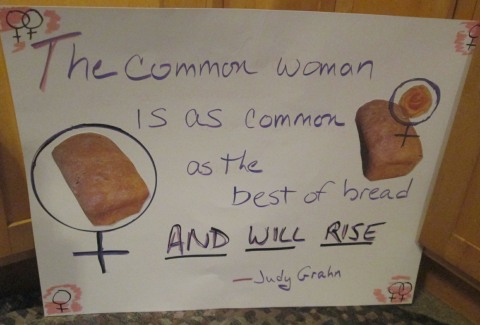 The common woman
is as common
as the
best of bread
AND WILL RISE
— Judy Grahn